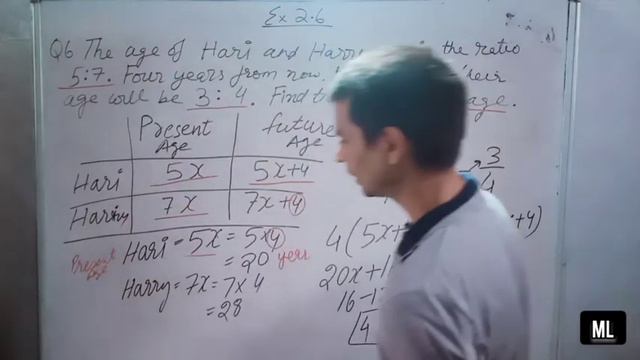 Ex 2.6
Q6 The age of Hari and Harry in the ratio
5:7. Four years from now. their
age will be 3:4. Find age.
Present Age future Age
Hari 5x 5x+4
Harry 7x 7x+4
Present Age
Hari = 5x = 5×4
= 20 years
Harry = 7x = 7×4
= 28
3
4
4(5x+ +4)
20x+1
16-
4
ML